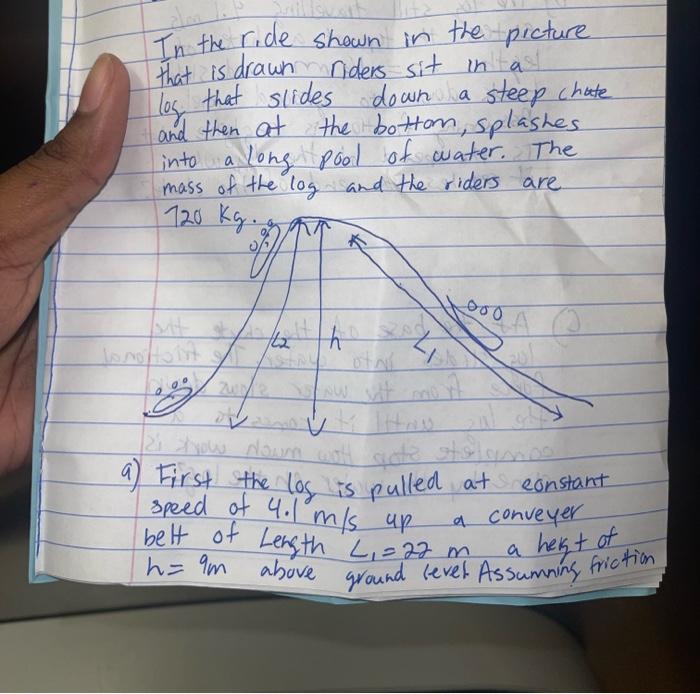 In the ride shown in the picture
that is drawn riders sit in a
log that slides down a steep chute
and then at the bottom, splashes
into a long pool of water. The
mass of the log and the riders are
720 Kg.
L2
h
L1
a) First the log is pulled at constant
speed of 4.1 m/s up a conveyer
belt of Length L1 = 22 m a heigt of
h = 9m above ground level. Assumning friction